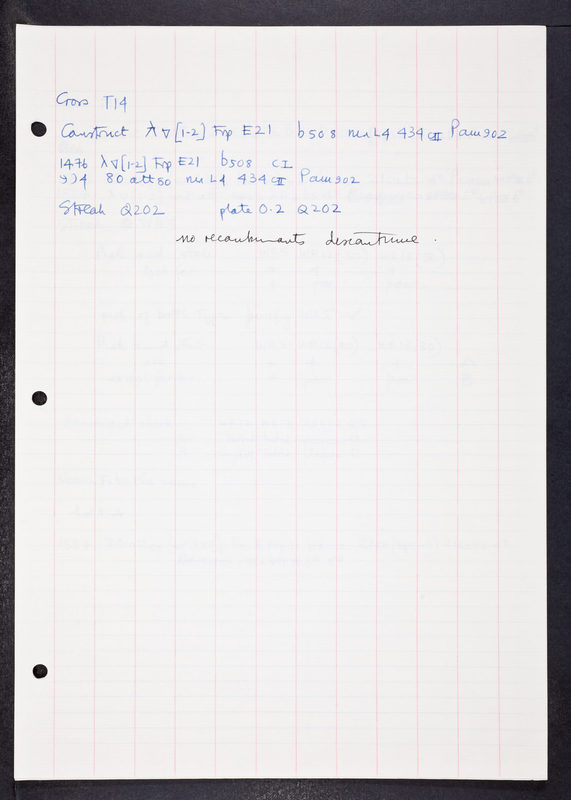 Cross T14
Construct λ ∇ [1-2] Trp E21 b508 nin L4 434 cII Pam902
1476 λ ∇ [1-2] Trp E21 b508 cI
994 80 att80 nin L4 434 cII Pam902
Streak Q202 plate 0.2 Q202
no recombinants discontinue.